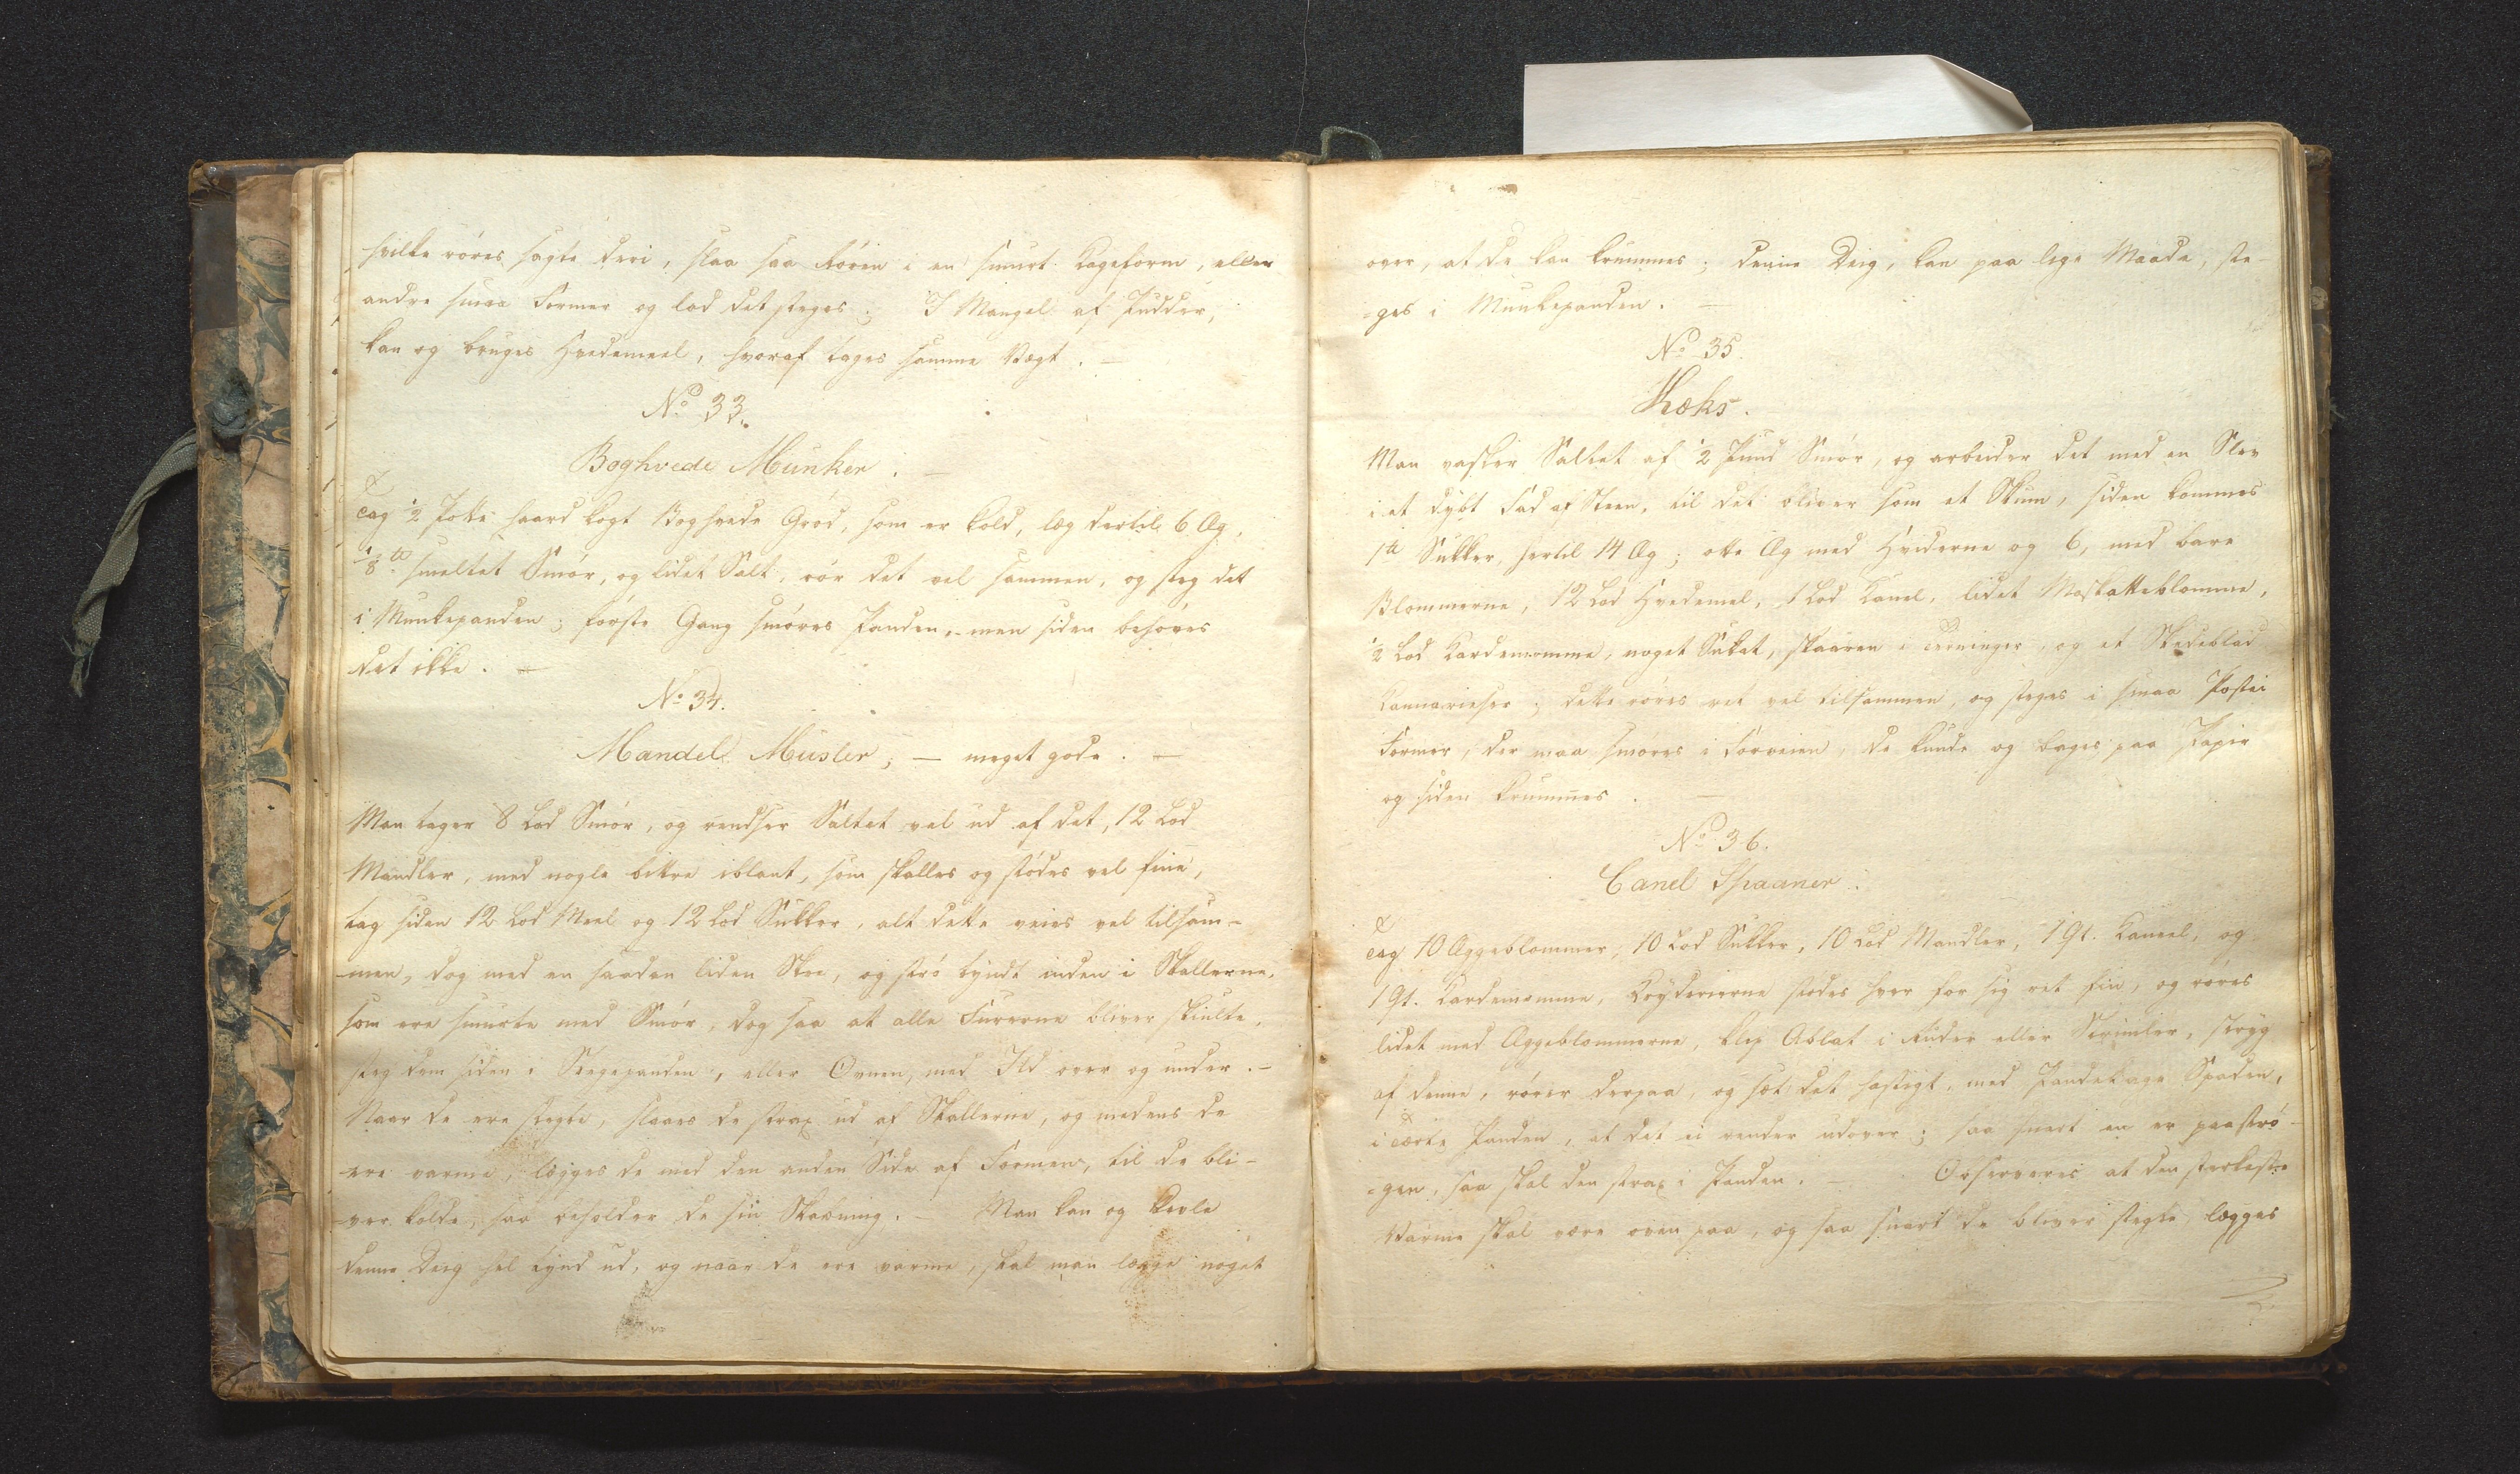 hvilke röres sagte deri, slaa saa Rören i en smurt Kageform, eller
andre smaa Former og lad det steges; I Mangel af Pudder,
kan og bruges Hvedemeel, hvoraf tages samme Vægt. —
No 33.
Boghvede Munker. —
Tag ½ Potte haard kogt Boghvede Gröd, som er kold, læg dertil 6 Æg,
1/8 ℔ smeltet Smör, og lidet Salt, rör det vel sammen, og steg det
i Munkepanden; förste Gang smöres Panden, men siden behöves
det ikke. —
No 34.
Mandel Musler, — meget gode. —
Man tager 8 Lod Smör, og rendser Saltet vel ud af det, 12 Lod
Mandler, med nogle bittre iblant, som skalles og stödes vel fine,
tag siden 12 Lod Meel og 12 Lod Sukker, alt dette veies vel tilsam-
men, dog med en saadan liden Skee, og strö tyndt inden i Skallerne,
som ere smurte med Smör, dog saa at alle Furerne bliver skiulte,
steg dem siden i Stegepanden, eller Ovnen, med Ild over og under. —
Naar de ere stegte, slaaes de strax ud af Skallerne, og medens de
ere varme, lægges de med den anden Side af Formen, til de bli-
ver kolde, saa beholder de sin Skabning. — Man kan og kevle
denne Deig hel tynd ud, og naar de ere varme, skal man lægge noget
over, at de kan krummes; denne Deig, kan paa lige Maade, ste-
=ges i Munkepanden. —
No 35.
Kæks.
Man vasker Saltet af ½ Pund Smör, og arbeider det med en Slev
i et dybt Fad af Steen, til det bliver som et Skum, siden kommes
1 ℔ Sukker, hertil 14 Æg; otte Æg med Hviderne og 6, med bare
Blommerne, 12 Lod Hvedemel, 1 Lod Kanel, lidet Moskatteblomme,
½ Lod Kardemomme, noget Sukat, skaaren i Terninger, og et Skeeblad
Kannarieser; dette röres ret vel tilsammen, og steges i smaa Postei
Former, der maa smöres i Forveien, de kunde og bages paa Papir
og siden krummes. —
No 36.
Canel Spaaner.
Tag 10 Æggeblommer, 10 Lod Sukker, 10 Lod Mandler, 1 Qt. Kaneel, og
1 Qt. Kardemomme, Krÿderierne stödes hver for sig ret fin, og röres
lidet med Æggeblommerne, klip Ablat i Ruder eller Strimler, strÿg
af denne, rörer derpaa, og sæt det hastigt, med Pandekage Spaden,
i Tærte Panden, at det ei render udover; saa snart en er paaströ-
=gen, saa skal den strax i Panden. — Observeres at den sterkeste
Varme skal være oven paa, og saa snart de bliver stegte, lægges